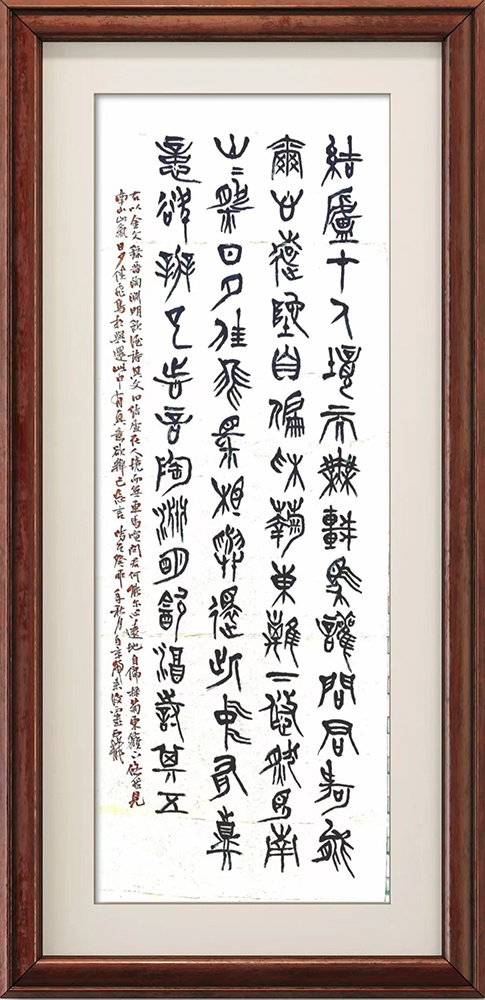 結廬在人境而無車馬讙問君何能
爾心遠地自偏采菊東籬下悠然見南
山=氣日夕佳飛鳥相與還此中有真
意欲辨已忘言陶淵明飲酒詩其五
右以金文錄晉陶淵明飲酒詩其文曰結廬在人境而無車馬喧問君何能尔心遠地自偏採菊東籬下悠然見
南山山氣日夕佳飛鳥相與還此中有真意欲辨已忘言時在癸卯年秋月